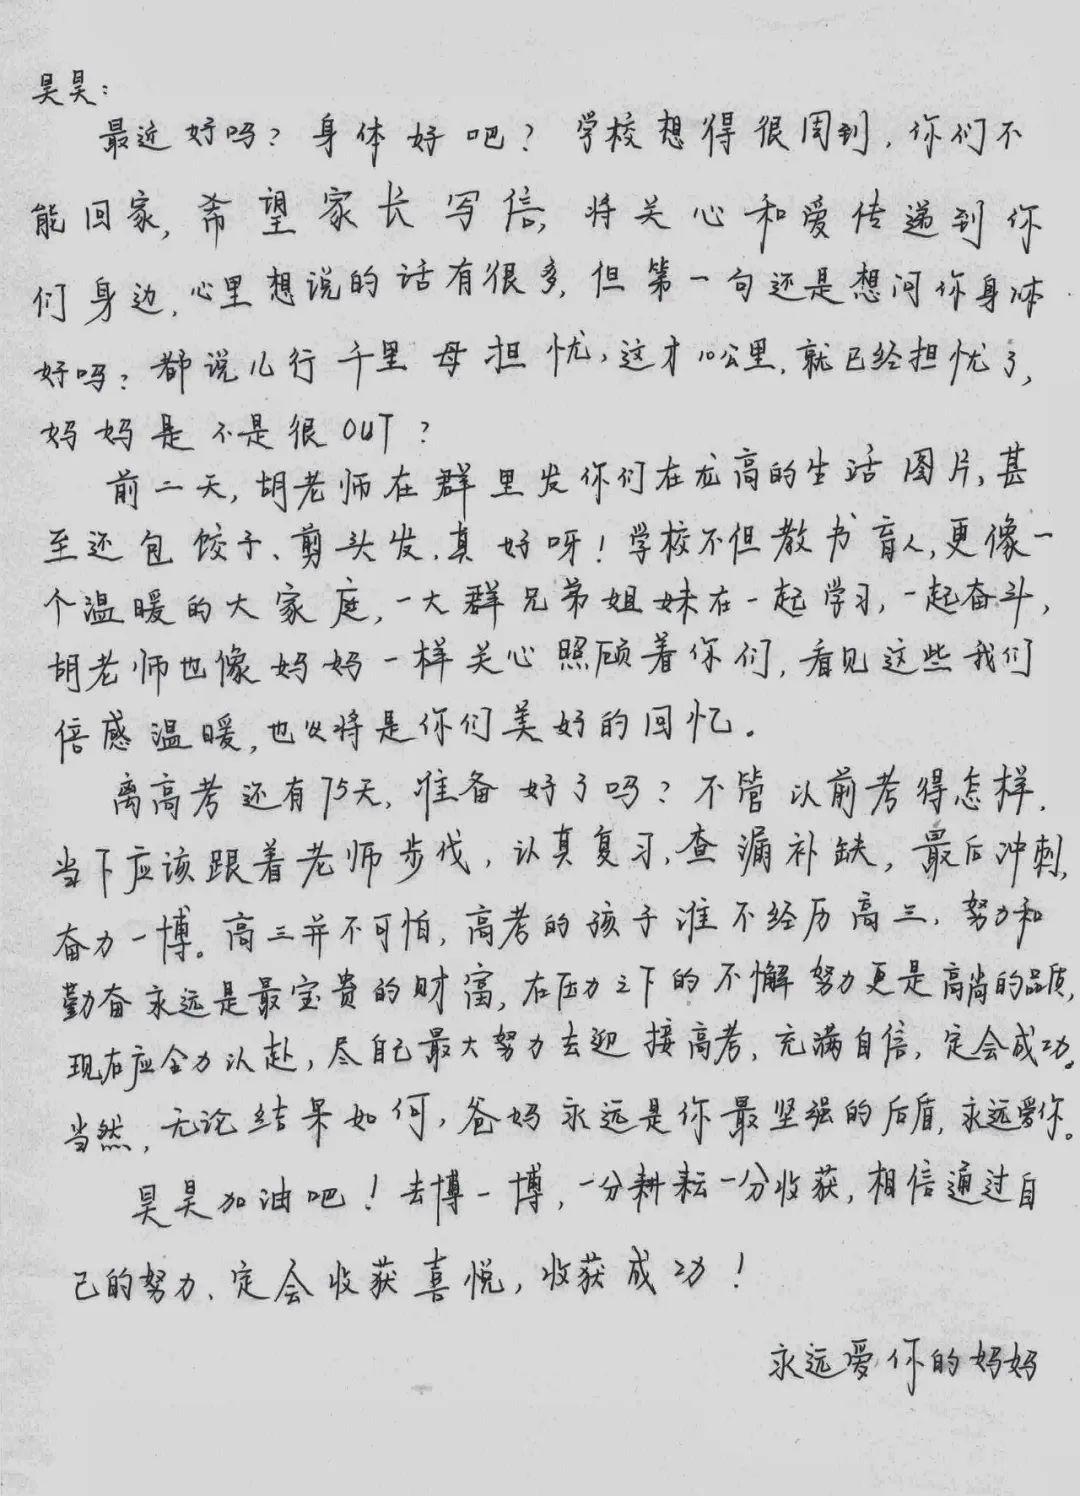 昊昊：
最近好吗？身体好吧？学校想得很周到，你们不
能回家，希望家长写信，将关心和爱传递到你
们身边，心里想说的话有很多，但第一句还是想问你身体
好吗？都说儿行千里母担忧，这才10公里，就已经担忧了，
妈妈是不是很OUT？
前二天，胡老师在群里发你们在龙高的生活图片，甚
至还包饺子、剪头发，真好呀！学校不但教书育人，更像一
个温暖的大家庭，一大群兄弟姐妹在一起学习，一起奋斗，
胡老师也像妈妈一样关心照顾着你们，看见这些我们
倍感温暖，也必将是你们美好的回忆。
离高考还有75天，准备好了吗？不管以前考得怎样，
当下应该跟着老师步伐，认真复习，查漏补缺，最后冲刺，
奋力一博。高三并不可怕，高考的孩子谁不经历高三，努力和
勤奋永远是最宝贵的财富，在压力之下的不懈努力更是高尚的品质，
现在应全力以赴，尽自己最大努力去迎接高考，充满自信，定会成功。
当然，无论结果如何，爸妈永远是你最坚强的后盾，永远爱你。
昊昊加油吧！去博一博，一分耕耘一分收获，相信通过自
己的努力、定会收获喜悦，收获成功！
永远爱你的妈妈